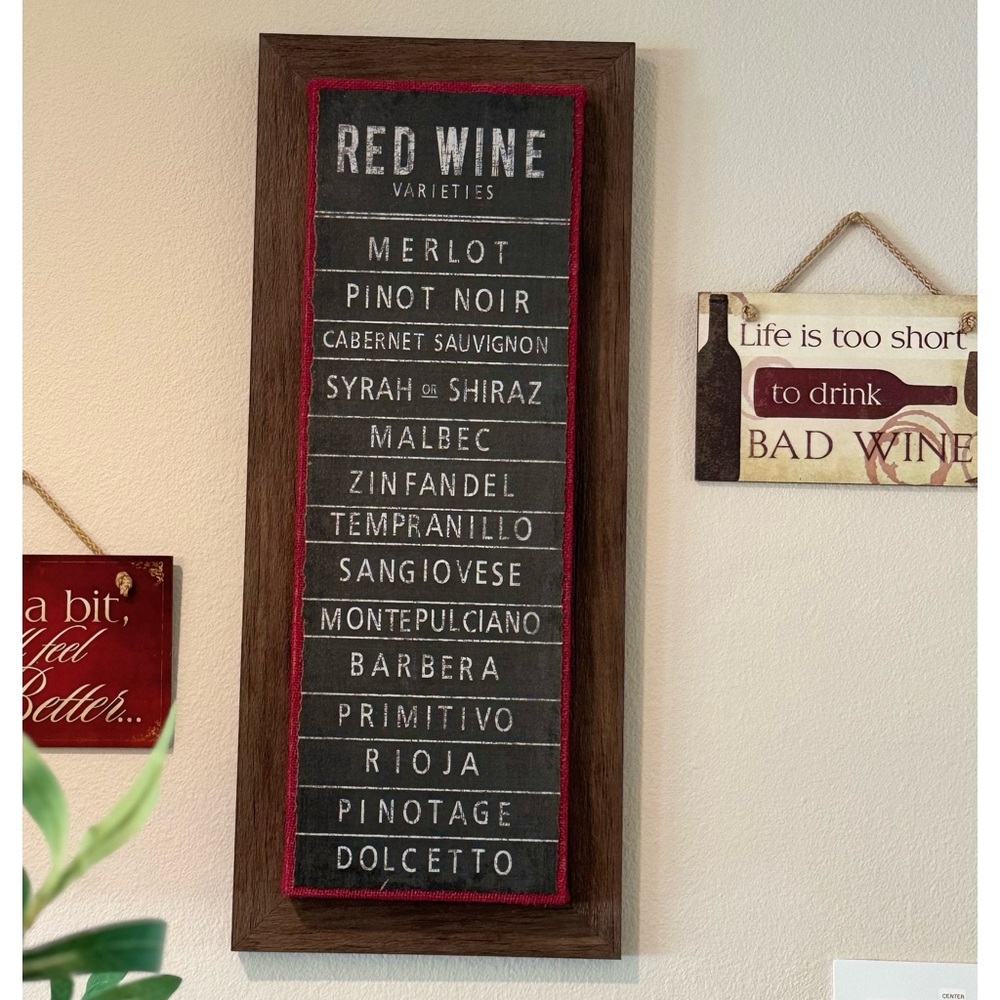 RED WINE
VARIETIES
MERLOT
PINOT NOIR
CABERNET SAUVIGNON
SYRAH OR SHIRAZ
MALBEC
ZINFANDEL
TEMPRANILLO
SANGIOVESE
MONTEPULCIANO
BARBERA
PRIMITIVO
RIOJA
PINOTAGE
DOLCETTO
Life is too short
to drink
BAD WINE
a bit,
feel
Better...
CENTER